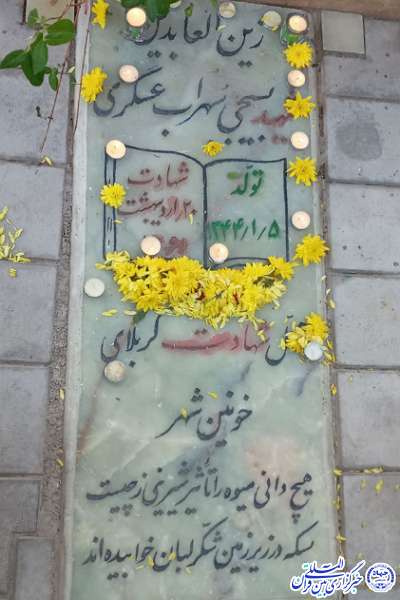 زین العابدین
شهید بسیجی سهراب عسگری
تولد
۱۳۴۴/۱/۵
شهادت
۲۰ اردیبهشت
شهادت کربلای
خونین شهر
هیچ دانی میوه را تأثیر شیرینی ز چیست
بسکه در زیر زمین شکر لبان خوابیده اند
خبرگزاری بین المللی قرآن